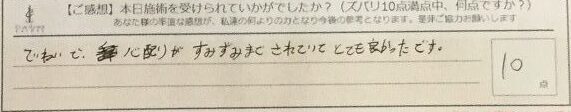 【ご感想】本日施術を受けられていかがでしたか?(ズバリ10点満点中、何点ですか?)
あなた様の率直な感想が、私達の何よりの力となり今後の参考となります。是非ご協力お願いします
ていねいで、心配りがすみずみまでされていてとても良かったです。
10
点